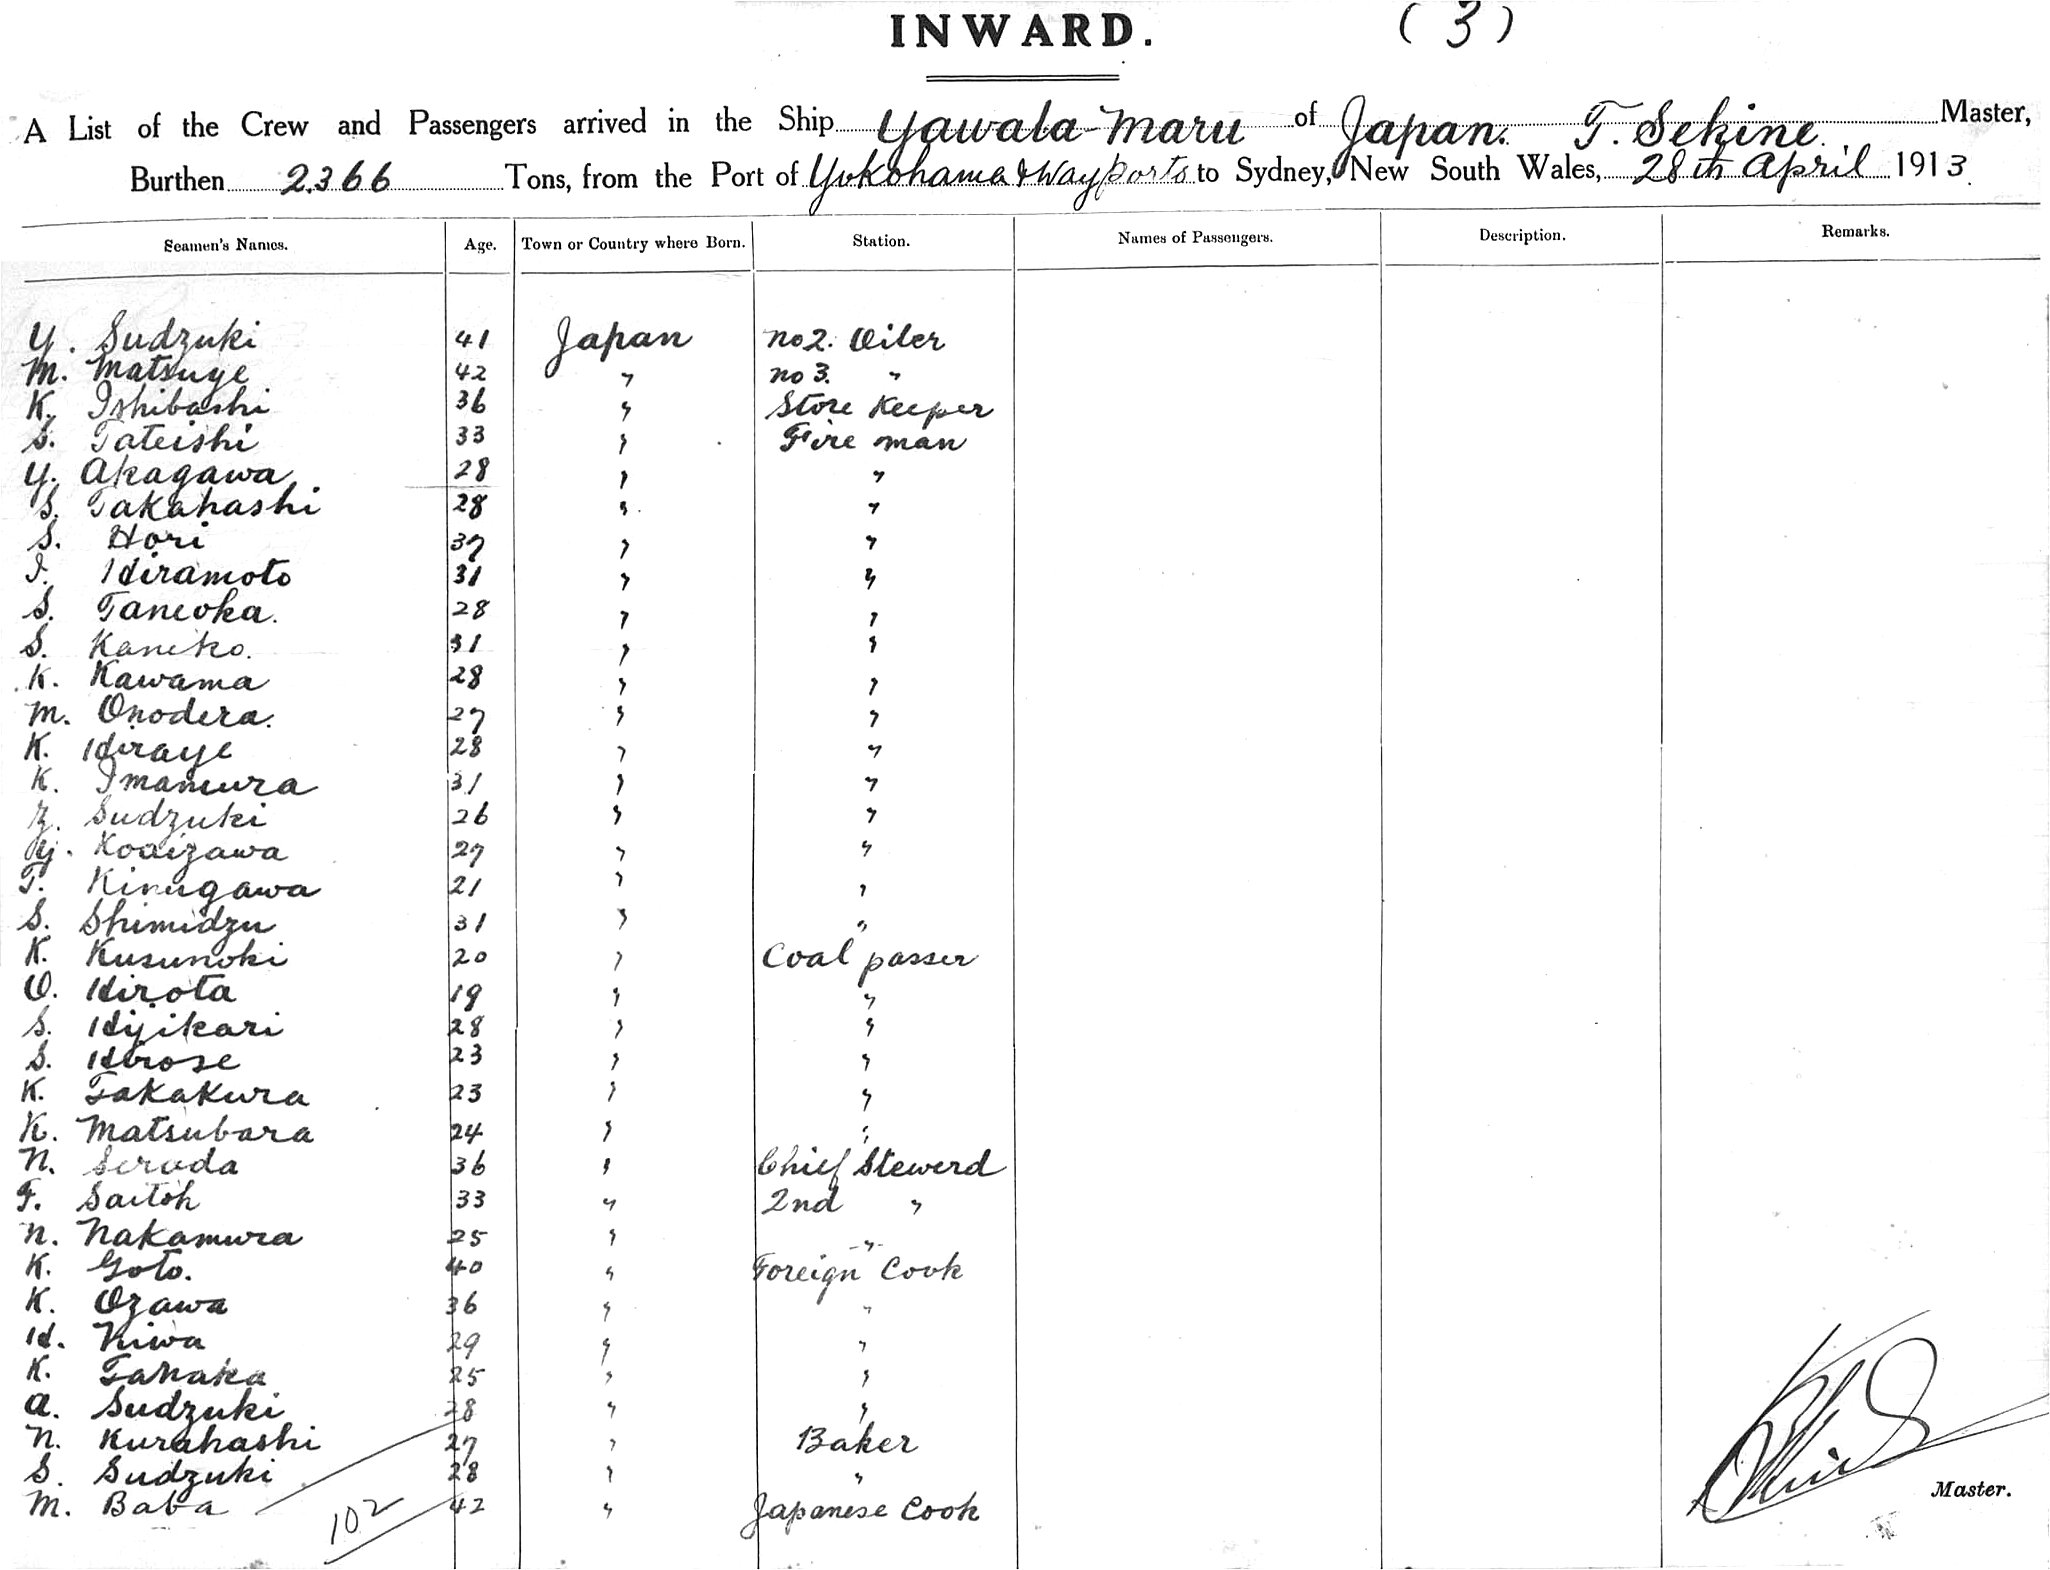 INWARD. (3)
A List of the Crew and Passengers arrived in the Ship Yawata Maru of Japan. T. Sekine. Master,
Burthen 2366 Tons, from the Port of Yokohama & Wayports to Sydney, New South Wales, 28th April 1913.
Seamen's Names. Age. Town or Country where Born. Station. Names of Passengers. Description. Remarks.
Y. Sudzuki 41 Japan No 2. Oiler
M. Matsuye 42 " No 3. "
K. Ishibashi 36 " Store Keeper
S. Tateishi 33 " Fire man
Y. Akagawa 28 " "
S. Takahashi 28 " "
S. Hori 37 " "
I. Hiramoto 31 " "
S. Taneoka. 28 " "
S. Kaneko. 31 " "
K. Kawama 28 " "
M. Onodera. 27 " "
K. Hiraye 28 " "
K. Imamura 31 " "
Z. Sudzuki 26 " "
Y. Koaizawa 27 " "
T. Kinugawa 21 " "
S. Shimidzu 31 " "
K. Kusunoki 20 " Coal passer
O. Hirota 19 " "
S. Hijikari 28 " "
S. Hirose 23 " "
K. Takakura 23 " "
K. Matsubara 24 " "
N. Serada 36 " Chief Stewerd
F. Saitoh 33 " 2nd "
N. Nakamura 25 " "
K. Goto. 40 " Foreign Cook
K. Ozawa 36 " "
H. Niwa 29 " "
K. Tanaka 25 " "
A. Sudzuki 28 " "
N. Kurahashi 27 " Baker
S. Sudzuki 28 " "
Master.
M. Baba 42 " Japanese Cook
102